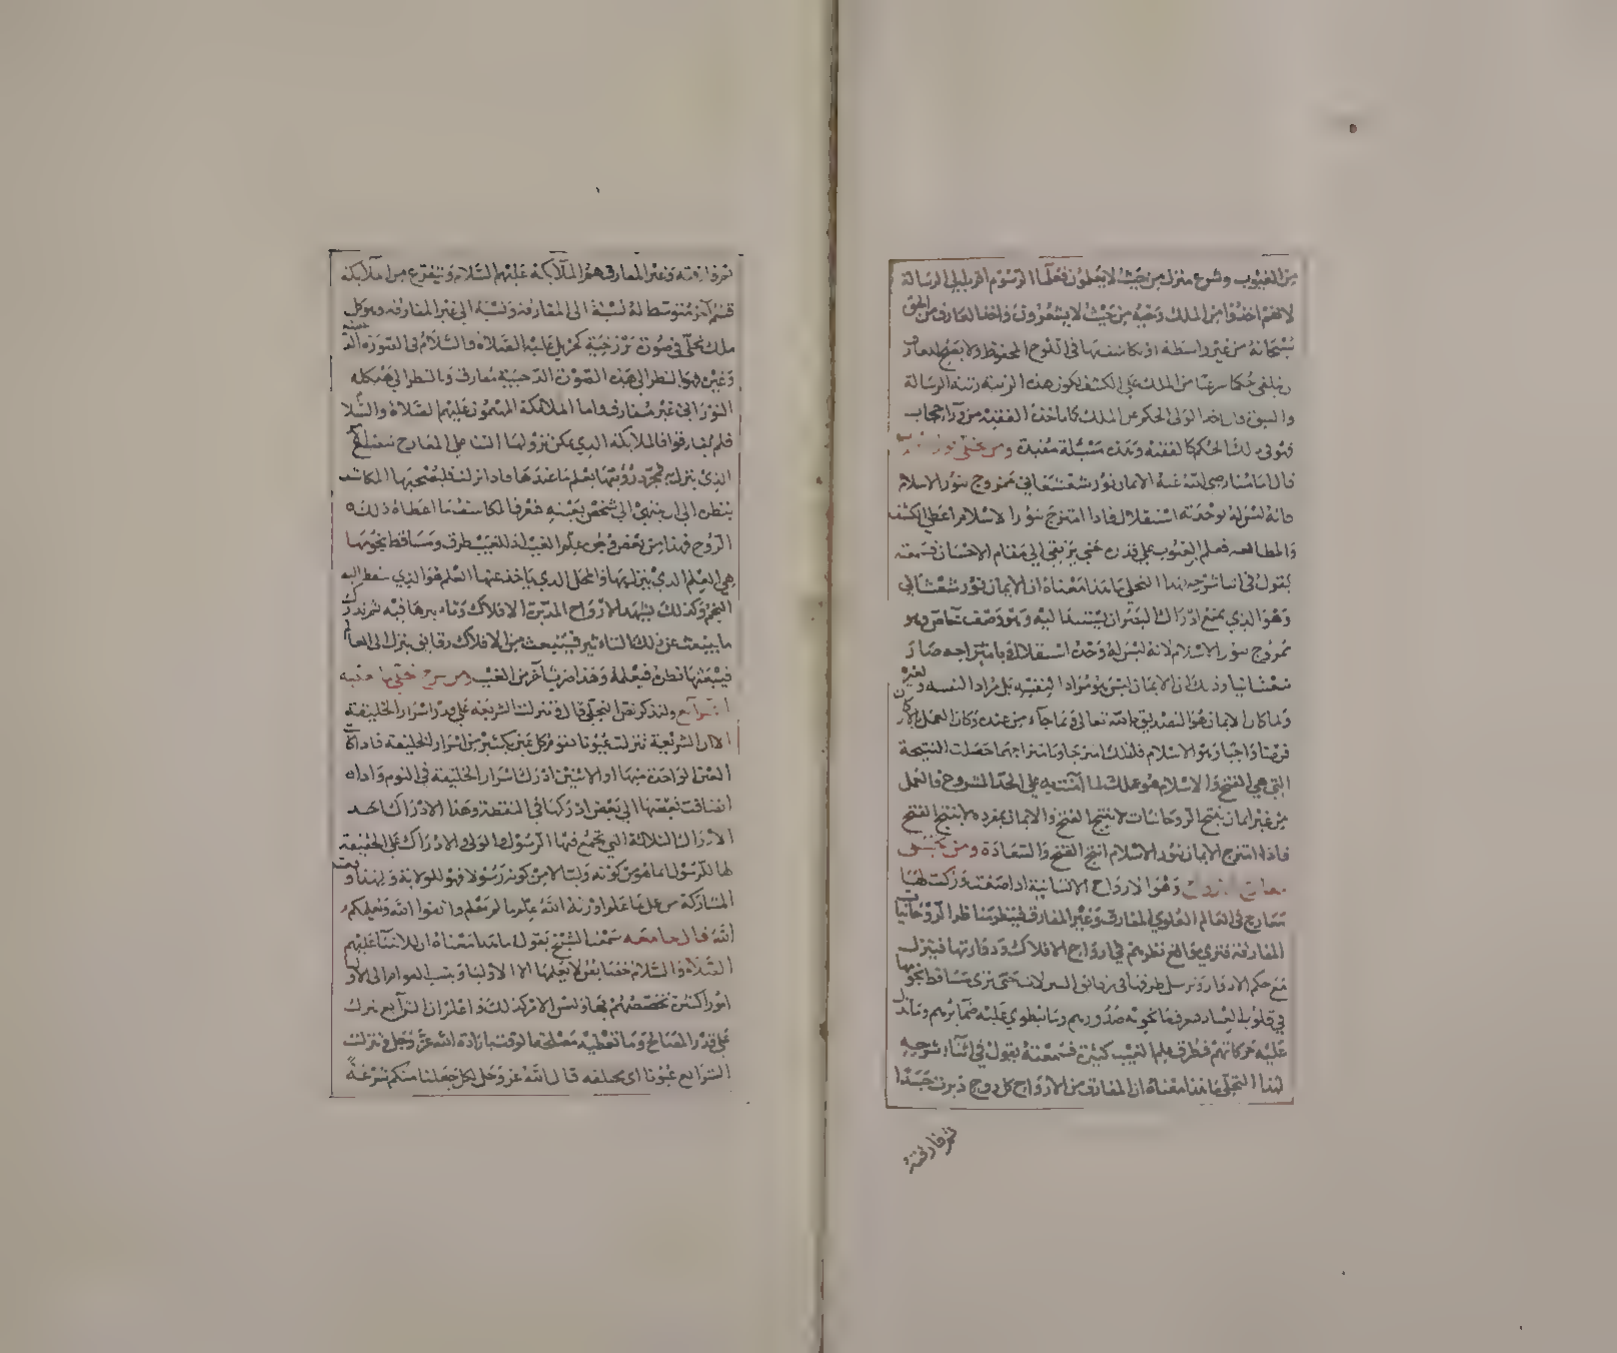 من الغيوب وشرع منزل من حيث لا يعلمون فعلماء الرسوم أقرب إلى الرسالة
لانهم اخذوا من الملك وغيبه من حيث لا يشعرون واخذ العارف من الحق
سبحانه من غير واسطة او بكاشفها في اللوح المحفوظ ولا يصح لعارف
ان يلقى حكما شرعيا من الملك على الكشف لكون هذه الرتبة رتبة الرسالة
والنبوة وان اخذ الولي الحكم عن الملك كما اخذه الفقيه من وراء حجاب
فتولى ذلك الحكم كالفقيه وتلك مسئلة مفيدة ومن تجلى نور
قال امامنا رضي الله عنه الايمان نور شعشعاني ممزوج بنور الاسلام
فانه ليس له لوحدته استقلال فاذا امتزج بنور الاسلام اعطى الكشف
والمطالعه فعلم الغيوب على قدره حتى يرتقي الى مقام الاحسان فسمعته
يقول في اثناء شرحه لهذا التجلي ما هذا معناه ان الايمان نور شعشعاني
وهو الذي يمنع ادراك البصر ان يستند اليه وهو وصف خاص وهو
ممزوج بنور الاسلام لانه ليس له وحده استقلال فبامتزاجه صار
شعشعانيا وذلك ان الايمان ليس هو مرادا لنفسه بل مراد النفسه ولغيره
ولما كان الايمان هو التصديق بالله تعالى وبما جاء من عنده وكان العمل بالاركان
فرضا واجبا وهو الاسلام فلذلك امتزجا وبامتزاجهما حصلت النتيجة
التي هي الفتح والاسلام هو عملك لما آمنت به على الحد المشروع فالعمل
من غير ايمان ينتج الروحانيات لا ينتج الفتح والايمان بمفرده لا ينتج الفتح
فاذا امتزج الايمان بنور الاسلام انتج الفتح والسعادة ومن تجلى
معارج الارواح وهو للارواح الانسانية اذا صفت وزكت لها
معارج في العالم العلوي المفارق وغير المفارق فينظر مناظر الروحانيات
المفارقة فترى مواقع نظرهم في ارواح الافلاك ودوراتها فينزل
مع حكم الادوار وترسل طرفها في رقائق التنزلات حتى ترى مساقط نجومها
في قلوب العباد فتعرف ما تحويه صدورهم وما تنطوي عليه ضمائرهم وما تدل
عليه حركاتهم فطرق علم الغيب كثيرة فسمعته يقول في اثناء شرحه
لهذا التجلي ما هذا معناه ان المفارق من الارواح كل روح دبرت جسدا
ثم فارقته
ثم فارقته وغير المفارق هم الملائكة عليهم السلام ويتفرع من الملائكة
قسم آخر متوسط له نسبة الى المفارقة ونسبة الى غير المفارقة وهو كل
ملك تجلى في صورة برزخية كجبريل عليه الصلاة والسلام في الصورة الحسية
وغيره فهو بالنظر الى هذه الصورة الدحيية مفارق وبالنظر الى هيكله
النوراني غير مفارق واما الملائكة المهيمون عليهم الصلاة والسلام
فلم يفارقوا فالملائكة الذي يمكن نزولها
الذي ينزل به بمجرد رؤيتها يعلم ما عندها فاذا نزلت فيصحبها المكاشف
بنظره الى ان ينتهي الى شخص بعينه فعرف المكاشف ما اعطاه ذلك
الروح فهذا من بعض وجوه علم الغيب اذ للغيب طرق ومساقط نجومها
هي العلم الذي ينزل بها والمحل الذي ياخذ عنها العلم هو الذي سقط اليه
النجم وكذلك يشهد الارواح المدبرة الافلاك وتاثيرها فيه ثم يدرك
ما ينبعث عن ذلك التاثير فينبعث من الافلاك رقائق ينزل الى العالم
فيتبعها نظره فيعلمه وهذا ضرب آخر من الغيب ومن شرح تجلي
الشرائع ولنذكر نص التجلي قال تنزلت الشريعة على قدر اسرار الخليقة
الا ان الشريعة تنزلت عيونا تقوم كل عين بكثير من اسرار الخليقة فاذا كان
العين الواحدة منها او الاثنين ادرك اسرار الخليقة في النوم واذا
انضافت بعضها الى بعض ادركها في اليقظة وهذا الادراك احد
الادراكات الثلاثة التي تجمع فيها الرسول والولي والادراك على الحقيقة
لها للرسول انما هو من كونه وليا لا من كونه رسولا فهو للولاية ولهذا وقعت
المشاركة من عمل بما علم اورثه الله علم ما لم يعلم واتقوا الله ويعلمكم
الله قال جامعه سمعت الشيخ يقول ما هذا معناه ان للانبياء عليهم
الصلاة والسلام خفايا بقوا لا يعلمها الا الاولياء وينسب العوام الى الاولياء
امورا كثيرة تخصصهم بها وليس الامر كذلك واعلم ان الشرائع تنزلت
على قدر المصالح وما تعطيه مصلحة الوقت بارادة الله عز وجل فتنزلت
الشرائع عيونا اي مختلفه قال الله عز وجل لكل جعلنا منكم شرعة